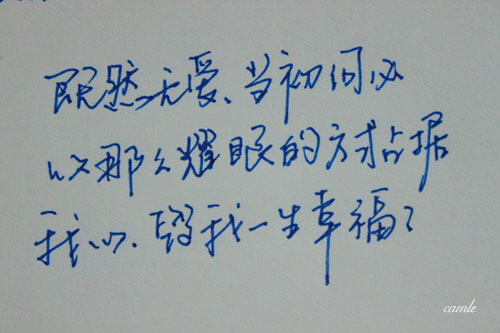 既然无爱、当初何必
以那么耀眼的方式占据
我心、毁我一生幸福?
camle